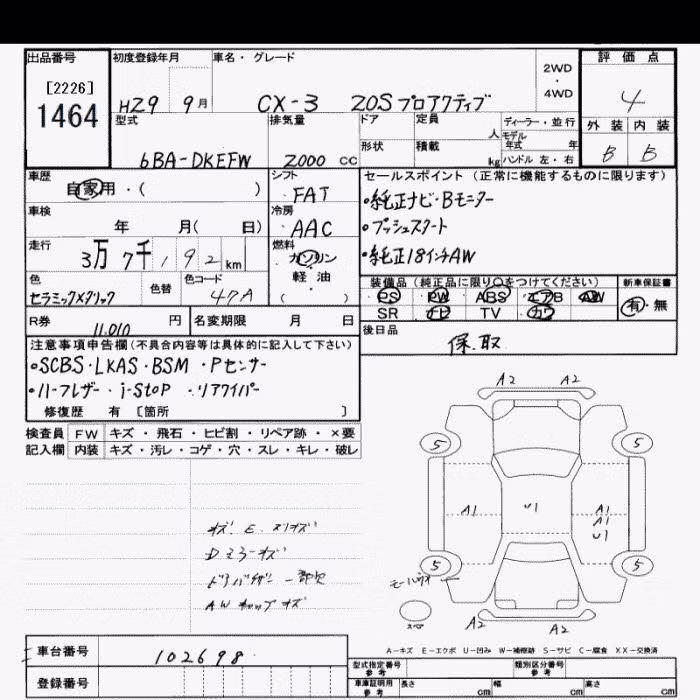 出品番号 初度登録年月 車名・グレード 評価点
[2226]
1464
H29 9月 CX-3 20Sプロアクティブ
2WD
・
4WD
4
型式 排気量 ドア 定員 人 ディーラー・並行
モデル年式 年
外装 内装
6BA-DKEFW 2000 cc 形状 積載 kg ハンドル 左・右
B B
車歴 シフト セールスポイント（正常に機能するものに限ります）
自家用・( ) FAT
・純正ナビ・Bモニター
車検 冷房
年 月( 日) AAC
・プッシュスタート
走行 燃料
3万7千192km ガソリン
・純正18インチAW
軽・油
・
( )
色 色替 色コード
セラミックメタリック 47A
装備品（純正品に限り○をつけてください） 新車保証書
PS PW ABS エアB AW 有・無
SR ナビ TV カワ
R券 11,010 円 名変期限 月 日
後日品
保、取
注意事項申告欄(不具合内容等は具体的に記入して下さい)
・SCBS・LKAS・BSM・Pセンサー
・ハーフレザー・i-STOP・リアワイパー
修復歴 有 〔箇所 〕
検査員 FW キズ・飛石・ヒビ割・リペア跡・×要
記入欄 内装 キズ・汚レ・コゲ・穴・スレ・キレ・破レ
A2 A2
5 5
A1 U1 A1
A1
U1
5 5
Dミラーキズ
ドアバイザー一部欠
AWキャップキズ
スペア
A2 A2
A-キズ E-エクボ U-凹み W-補修跡 S-サビ C-腐食 XX-交換済
車台番号 102698
登録番号
型式指定番号 参考 類別区分番号 参考
車庫証明用 参考 長さ cm 幅 cm 高さ cm